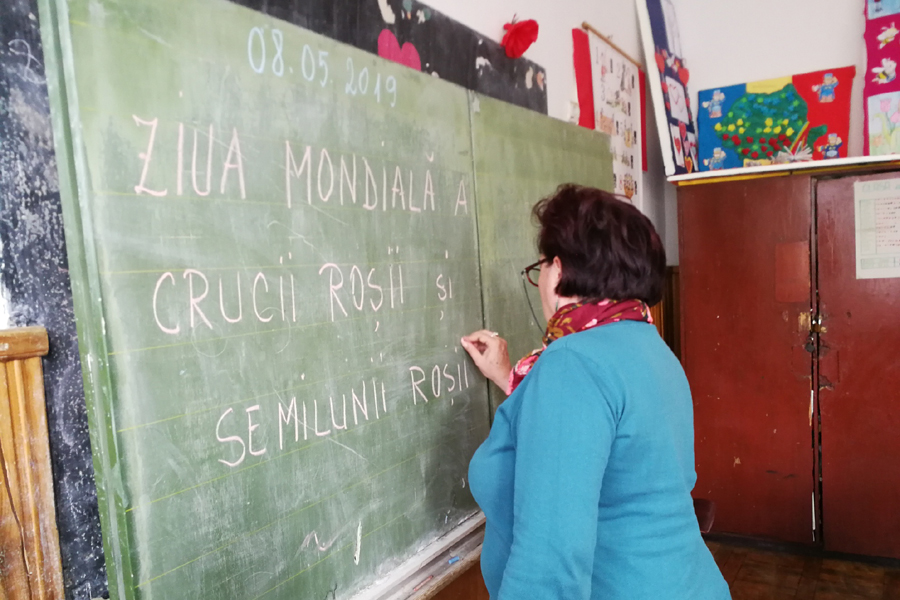 08.05.2019
ZIUA MONDIALĂ A
CRUCII ROȘII și
SEMILUNII ROȘII